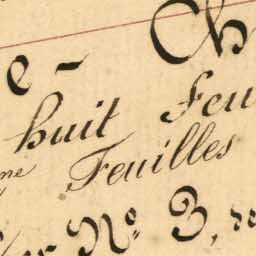 e - Ch
huit Feu
me Feuilles
No. 3,